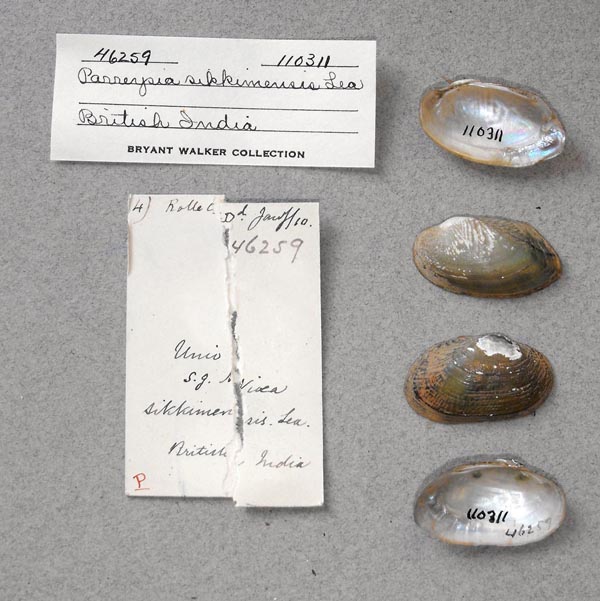 46259 110311
Parreysia sikkimensis Lea
British India
BRYANT WALKER COLLECTION
4) Rolle Dd
46259
Unio
s.g.
sikkimensis. Lea.
British India
P
110311
110311
46259